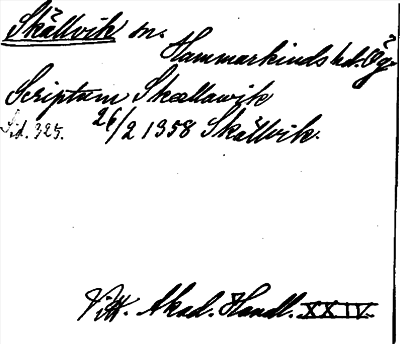 Skällvik sn.
Hammarkinds hd. Ög.
Scriptum Skællawik
Sid. 325. 26/2 1358 Skällvik.
Vitt. Akad. Handl. XXIV.